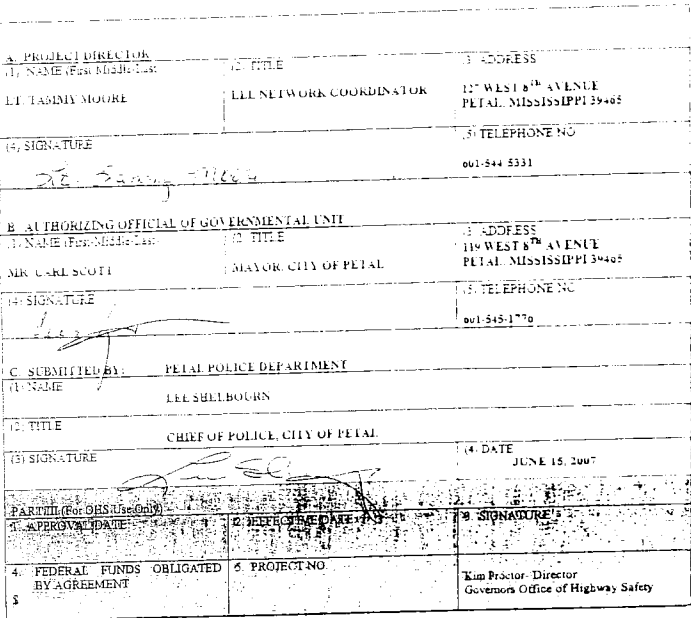 A. PROJECT DIRECTOR
(1) NAME (First-Middle-Last) (2) TITLE (3) ADDRESS
LT. TAMMY MOORE LEL NETWORK COORDINATOR 127 WEST 8TH AVENUE
PETAL, MISSISSIPPI 39465
(4) SIGNATURE (5) TELEPHONE NO
601-544-5331
B. AUTHORIZING OFFICIAL OF GOVERNMENTAL UNIT
(1) NAME (First-Middle-Last) (2) TITLE (3) ADDRESS
MR. CARL SCOTT MAYOR, CITY OF PETAL 119 WEST 8TH AVENUE
PETAL, MISSISSIPPI 39465
(4) SIGNATURE (5) TELEPHONE NO
601-545-1776
C. SUBMITTED BY: PETAL POLICE DEPARTMENT
(1) NAME
LEE SHELBOURN
(2) TITLE
CHIEF OF POLICE, CITY OF PETAL
(3) SIGNATURE (4) DATE
JUNE 15, 2007
PART III (For OHS Use Only)
1. APPROVAL DATE 2. EFFECTIVE DATE 3. SIGNATURE
4. FEDERAL FUNDS OBLIGATED BY AGREEMENT 5. PROJECT NO.
$
Kim Proctor- Director
Governors Office of Highway Safety